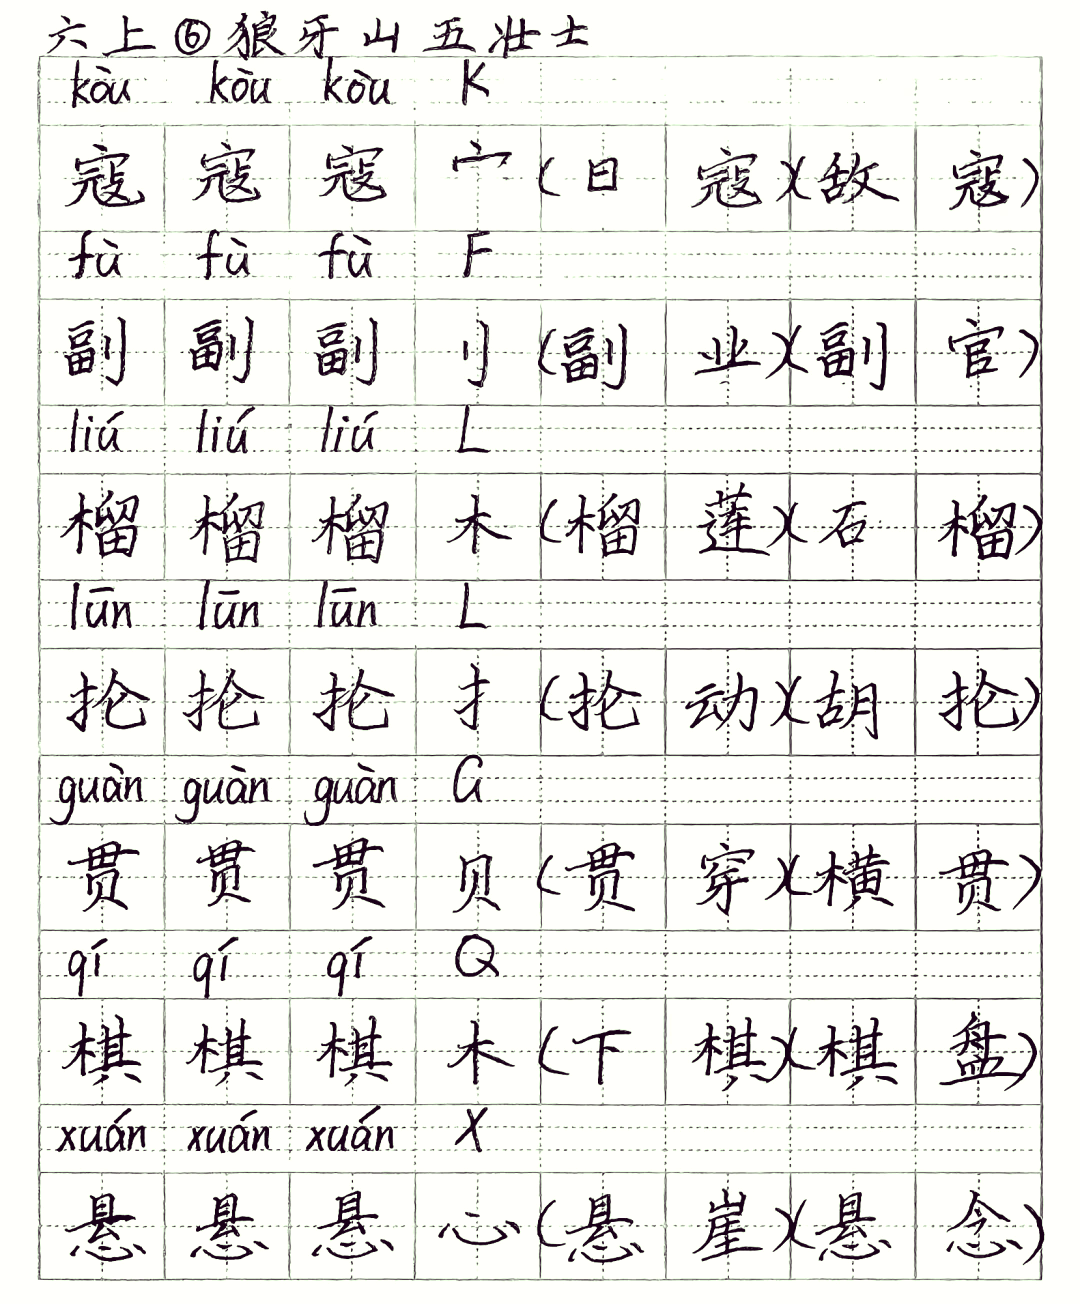 六上⑥狼牙山五壮士
kòu kòu kòu K
寇 寇 寇 宀 (日 寇)(敌 寇)
fù fù fù F
副 副 副 刂 (副 业)(副 官)
liú liú liú L
榴 榴 榴 木 (榴 莲)(石 榴)
lūn lūn lūn L
抡 抡 抡 扌 (抡 动)(胡 抡)
guàn guàn guàn G
贯 贯 贯 贝 (贯 穿)(横 贯)
qí qí qí Q
棋 棋 棋 木 (下 棋)(棋 盘)
xuán xuán xuán X
悬 悬 悬 心 (悬 崖)(悬 念)